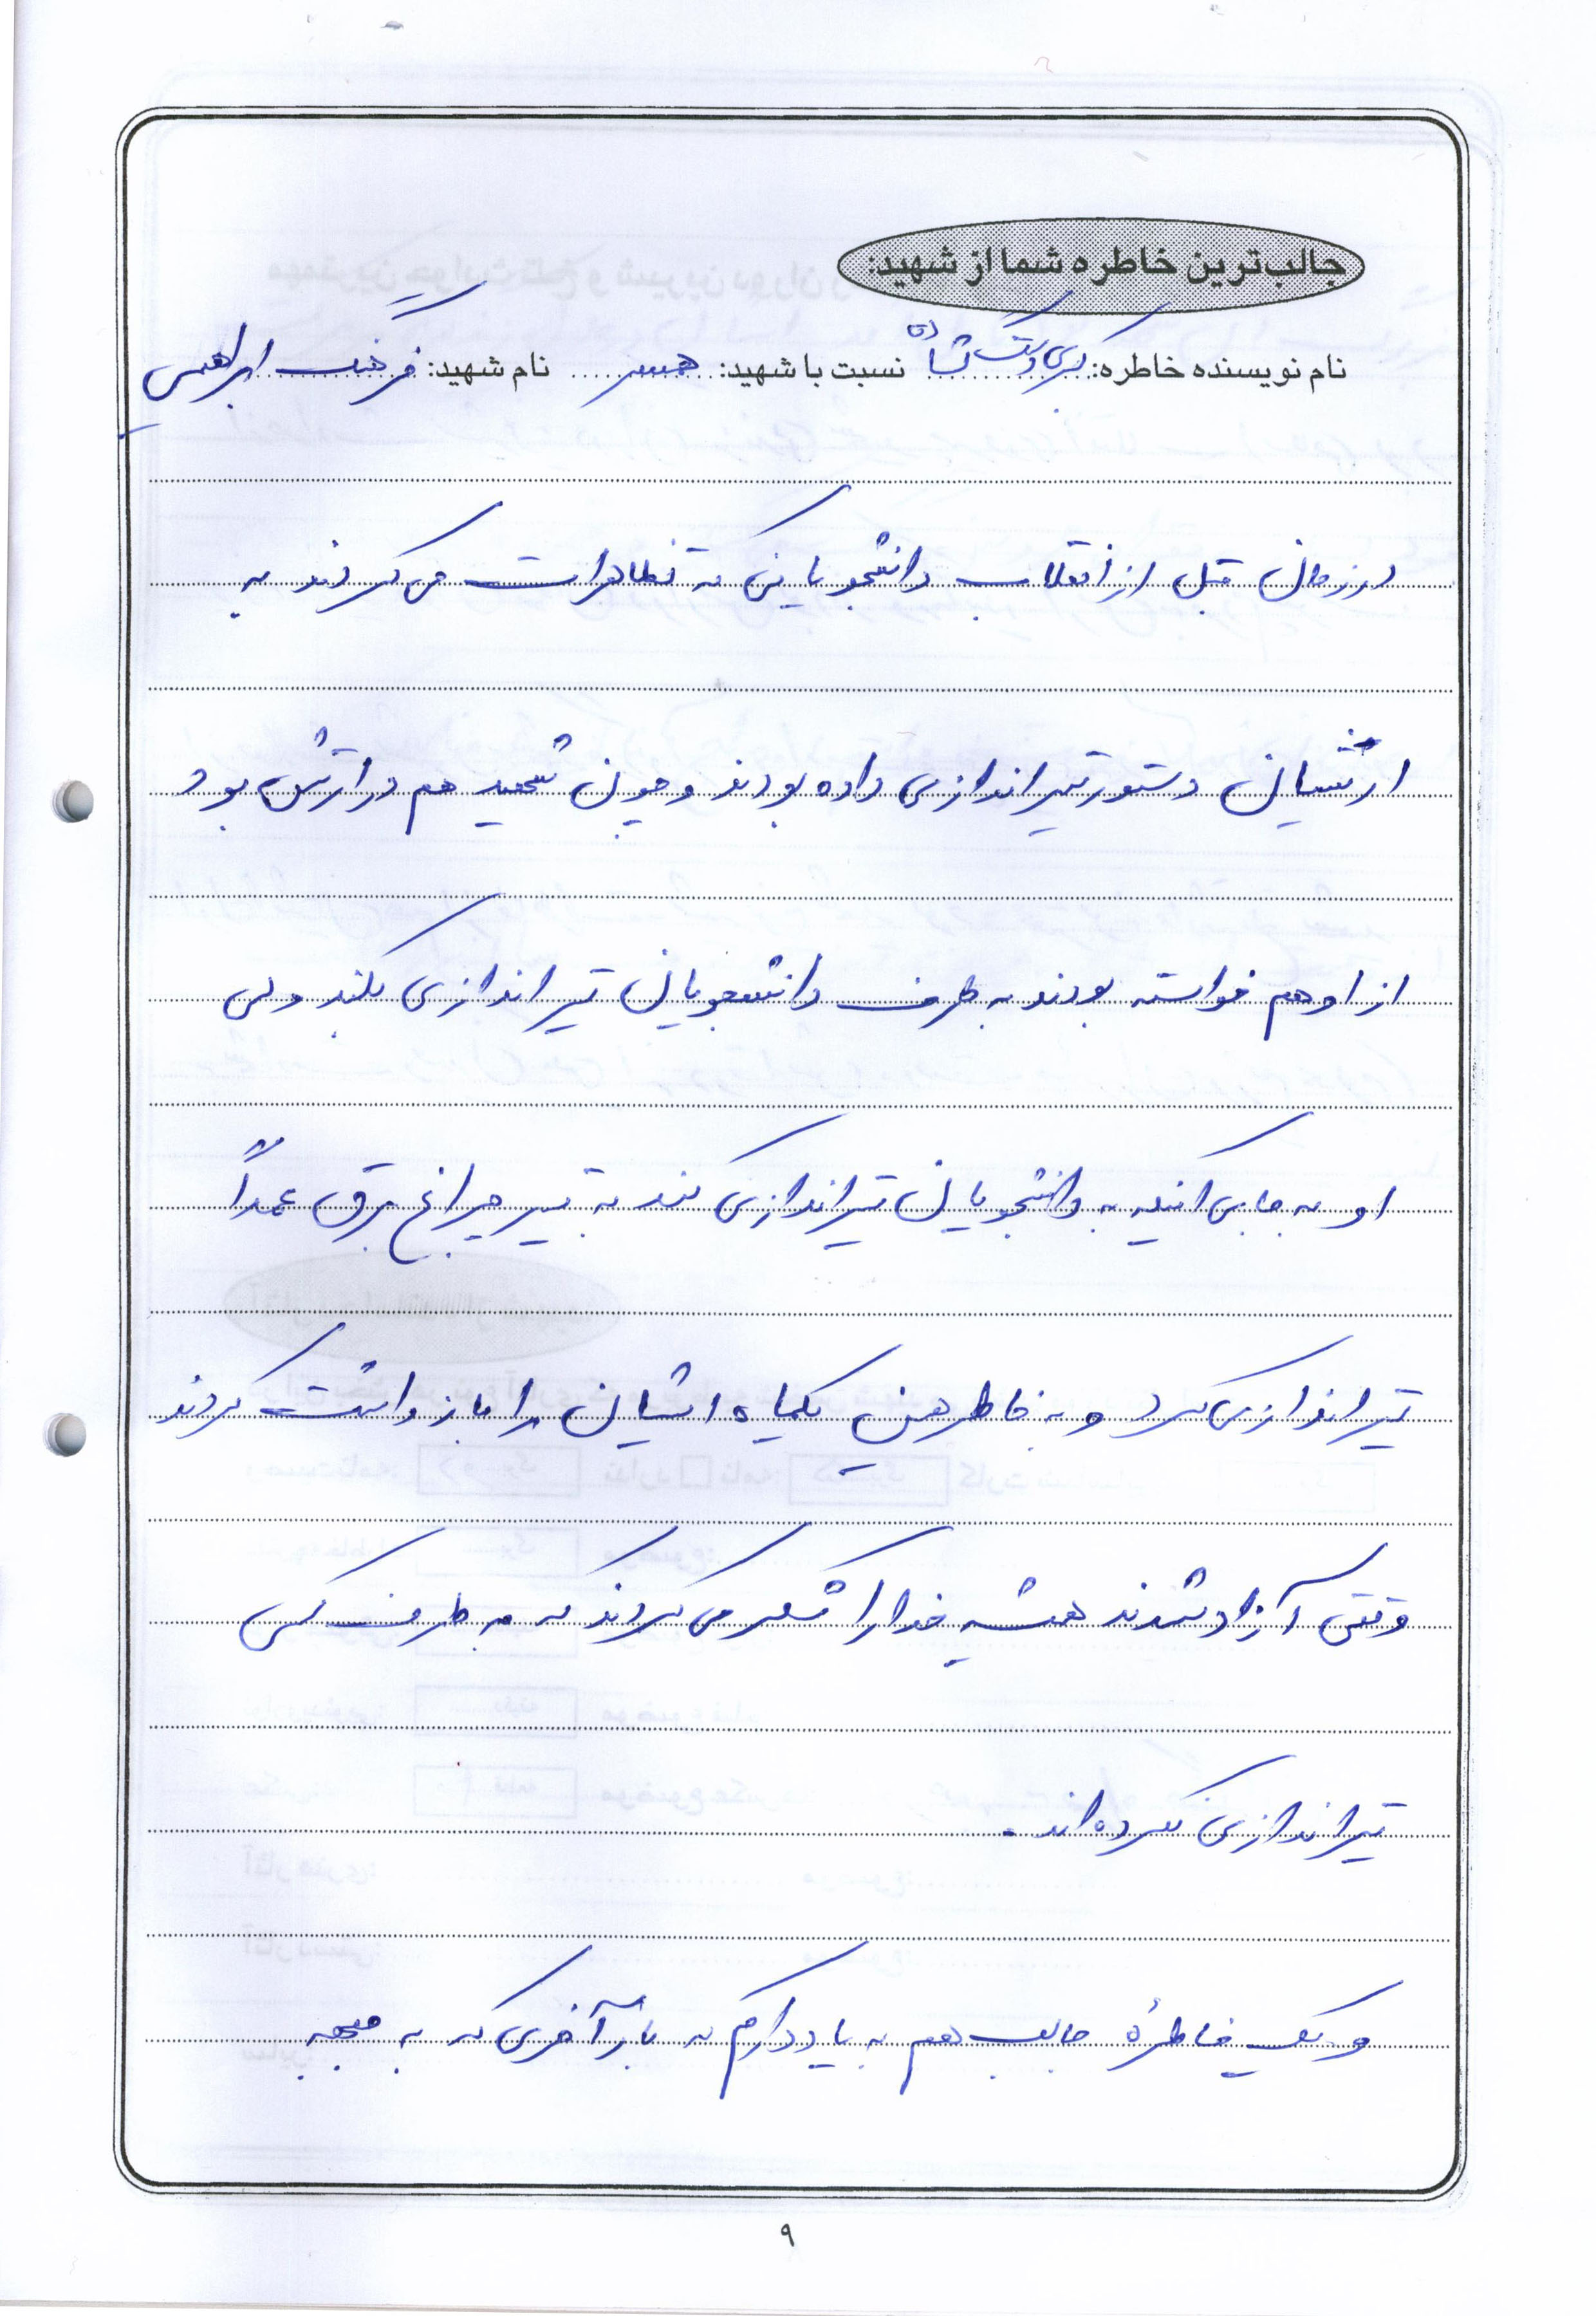 جالب‌ترین خاطره شما از شهید:
نام نویسنده خاطره: کبری نسبت با شهید: همسر نام شهید: فرهنگ ابراهیمی
در زمان قبل از انقلاب دانشجویانی که تظاهرات می کردند به
ارتشیان دستور تیراندازی داده بودند و چون شهید هم در ارتش بود
از او هم خواسته بودند به طرف دانشجویان تیراندازی بکند ولی
او به جای اینکه به دانشجویان تیراندازی کند به تیر چراغ برق عمداً
تیراندازی کرد و به خاطر همین یکماه ایشان را بازداشت کردند
وقتی آزاد شدند همیشه خدا را شکر می کردند که به طرف کسی
تیراندازی نکرده اند.
و یک خاطرهٔ جالب هم به یاد دارم که بار آخری که به جبهه
۹